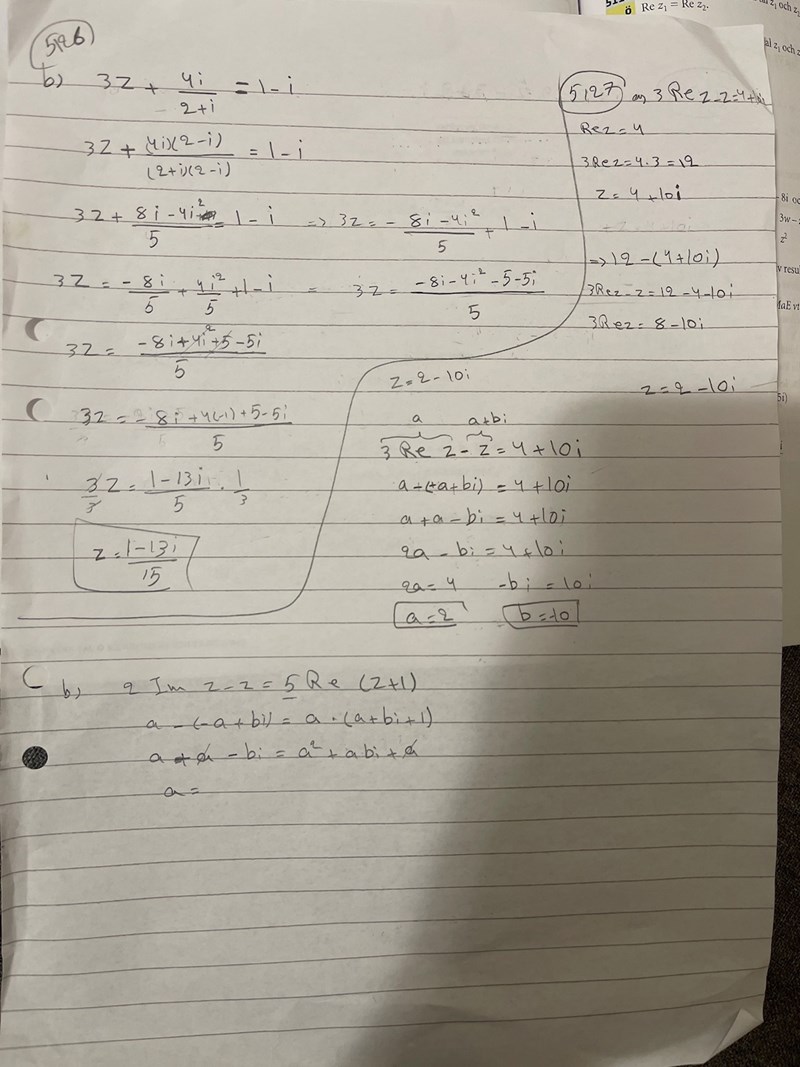 5126
b) 3z + 4i/(2+i) = 1-i
3z + (4i)(2-i)/((2+i)(2-i)) = 1-i
3z + (8i-4i²)/5 = 1-i => 3z = -(8i-4i²)/5 + 1-i
3z = -8i/5 + 4i²/5 + 1-i = 3z = (-8i-4i²-5-5i)/5
3z = (-8i+4i²+5-5i)/5
3z = (-8i+4(-1)+5-5i)/5
3z/3 = (1-13i)/5 · 1/3
z = (1-13i)/15
5127 a) 3 Re z-z=4+10i
Re z = 4
3 Re z = 4·3 = 12
z = 4+10i
=> 12-(4+10i)
3Re z-z = 12-4-10i
3Re z = 8-10i
z = 2-10i
z = 2-10i
a a+bi
3 Re z - z = 4+10i
a-(-a+bi) = 4+10i
a+a-bi = 4+10i
2a-bi = 4+10i
2a = 4 -bi = 10i
a = 2 b = 10
b) 2 Im z-z = 5 Re (z+1)
a-(-a+bi) = a·(a+bi+1)
a+a-bi = a²+abi+a
a =
ö Re z₁ = Re z₂.
z₁ och z
al z₁ och z
8i oc
3w-
z²
v resu
5i)